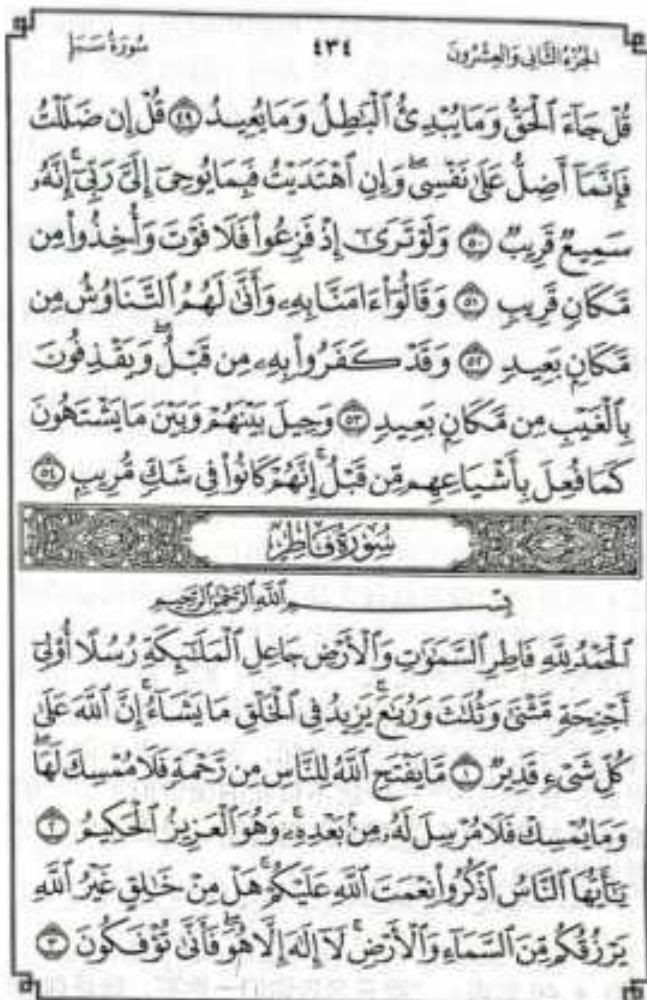 الجزء الثاني والعشرون ٤٣٤ سورة سبإ
قُلْ جَآءَ ٱلْحَقُّ وَمَا يُبْدِئُ ٱلْبَٰطِلُ وَمَا يُعِيدُ ٤٩ قُلْ إِن ضَلَلْتُ
فَإِنَّمَآ أَضِلُّ عَلَىٰ نَفْسِى ۖ وَإِنِ ٱهْتَدَيْتُ فَبِمَا يُوحِىٓ إِلَىَّ رَبِّىٓ ۚ إِنَّهُۥ
سَمِيعٌ قَرِيبٌ ٥٠ وَلَوْ تَرَىٰٓ إِذْ فَزِعُوا۟ فَلَا فَوْتَ وَأُخِذُوا۟ مِن
مَّكَانٍ قَرِيبٍ ٥١ وَقَالُوٓا۟ ءَامَنَّا بِهِۦ وَأَنَّىٰ لَهُمُ ٱلتَّنَاوُشُ مِن
مَّكَانٍۭ بَعِيدٍ ٥٢ وَقَدْ كَفَرُوا۟ بِهِۦ مِن قَبْلُ ۖ وَيَقْذِفُونَ
بِٱلْغَيْبِ مِن مَّكَانٍۭ بَعِيدٍ ٥٣ وَحِيلَ بَيْنَهُمْ وَبَيْنَ مَا يَشْتَهُونَ
كَمَا فُعِلَ بِأَشْيَاعِهِم مِّن قَبْلُ ۚ إِنَّهُمْ كَانُوا۟ فِى شَكٍّ مُّرِيبٍۭ ٥٤
سورة فاطر
بسم الله الرحمن الرحيم
ٱلْحَمْدُ لِلَّهِ فَاطِرِ ٱلسَّمَٰوَٰتِ وَٱلْأَرْضِ جَاعِلِ ٱلْمَلَٰٓئِكَةِ رُسُلًا أُو۟لِىٓ
أَجْنِحَةٍ مَّثْنَىٰ وَثُلَٰثَ وَرُبَٰعَ ۚ يَزِيدُ فِى ٱلْخَلْقِ مَا يَشَآءُ ۚ إِنَّ ٱللَّهَ عَلَىٰ
كُلِّ شَىْءٍ قَدِيرٌ ١ مَّا يَفْتَحِ ٱللَّهُ لِلنَّاسِ مِن رَّحْمَةٍ فَلَا مُمْسِكَ لَهَا ۖ
وَمَا يُمْسِكْ فَلَا مُرْسِلَ لَهُۥ مِنۢ بَعْدِهِۦ ۚ وَهُوَ ٱلْعَزِيزُ ٱلْحَكِيمُ ٢
يَٰٓأَيُّهَا ٱلنَّاسُ ٱذْكُرُوا۟ نِعْمَتَ ٱللَّهِ عَلَيْكُمْ ۚ هَلْ مِنْ خَٰلِقٍ غَيْرُ ٱللَّهِ
يَرْزُقُكُم مِّنَ ٱلسَّمَآءِ وَٱلْأَرْضِ ۚ لَآ إِلَٰهَ إِلَّا هُوَ ۖ فَأَنَّىٰ تُؤْفَكُونَ ٣